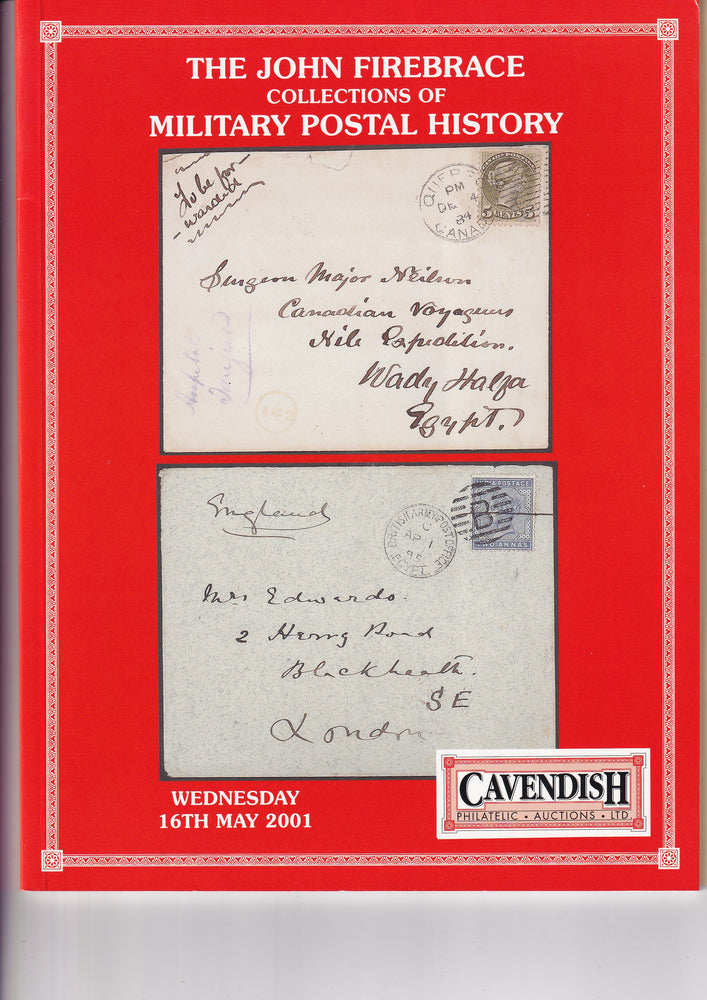 THE JOHN FIREBRACE
COLLECTIONS OF
MILITARY POSTAL HISTORY
To be for-
-warded
QUEBEC
PM
DE 4
84
CANADA
5 CENTS 5
Surgeon Major Neilson
Canadian Voyageurs
Nile Expedition.
Wady Halfa
Egypt.
Hospital
England
BRITISH ARMY POST OFFICE
C
AP 1
85
EGYPT.
B
INDIA POSTAGE
TWO ANNAS
Mrs Edwards
2 Road
Blackheath.
SE
London
WEDNESDAY
16TH MAY 2001
CAVENDISH
PHILATELIC • AUCTIONS • LTD.